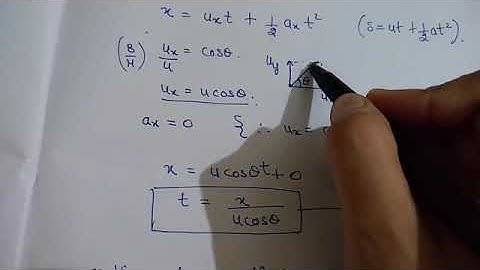 x = uₓt + ½ aₓt² (s = ut + ½at²).
(B/H) uₓ/u = cosθ. u_y
uₓ = ucosθ. θ
aₓ = 0 { ∴ uₓ =
x = ucosθt + 0
t = x/ucosθ